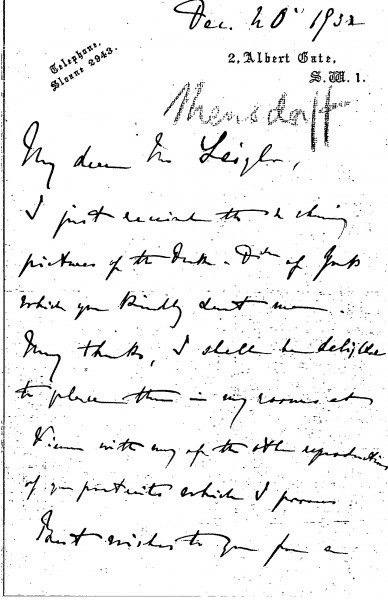 Dec. 20' 1932
Telephone,
Sloane 2943.
2, Albert Gate,
S.W. 1.
Mensdorff
My dear Mr
I just received the charming
pictures of the Duke & Dss of York
which you kindly sent me.
My thanks, I shall be delighted
to place them in my rooms at
Vienna with my of the other reproductions
of your portraits which I possess
Best wishes to you for a